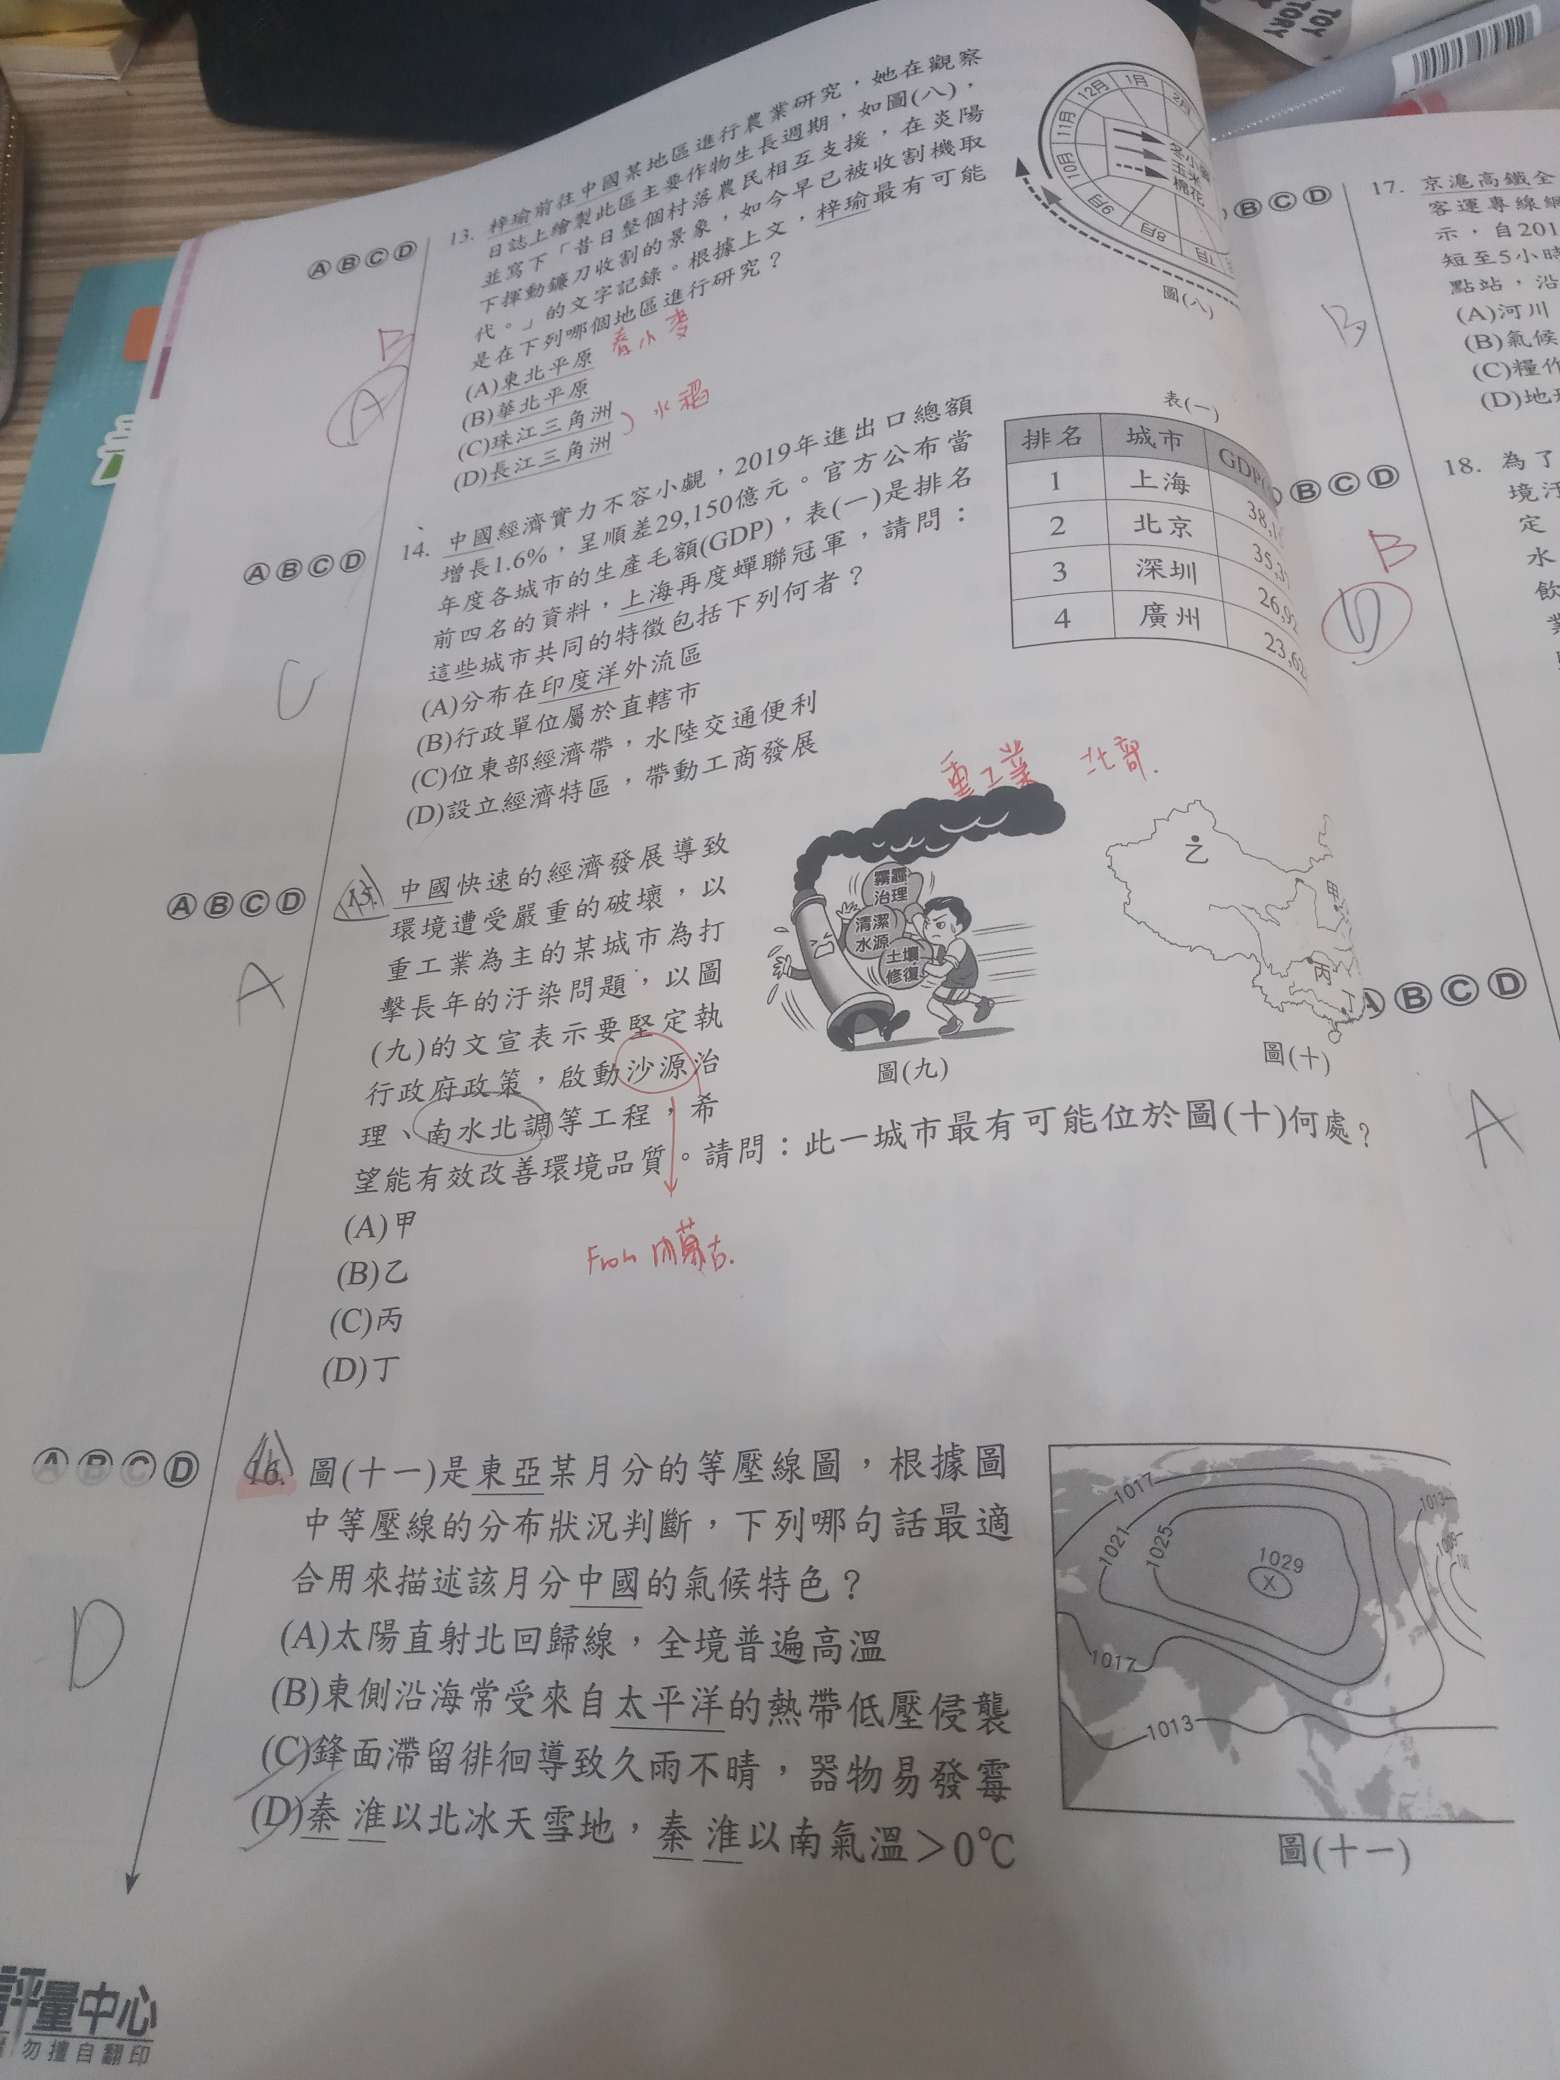 ⒶⒷⒸⒹ
13. 梓瑜前往中國某地區進行農業研究，她在觀察
日誌上繪製此區主要作物生長週期，如圖(八)，
並寫下「昔日整個村落農民相互支援，在炎陽
下揮動鐮刀收割的景象，如今早已被收割機取
代。」的文字記錄。根據上文，梓瑜最有可能
是在下列哪個地區進行研究？
(A)東北平原 春小麥
(B)華北平原
(C)珠江三角洲
(D)長江三角洲
水稻
B
A
12月
1月
2月
11月
10月
9月
8月
7月
冬小麥
玉米
棉花
圖(八)
ⒶⒷⒸⒹ
14. 中國經濟實力不容小覷，2019年進出口總額
增長1.6%，呈順差29,150億元。官方公布當
年度各城市的生產毛額(GDP)，表(一)是排名
前四名的資料，上海再度蟬聯冠軍，請問：
這些城市共同的特徵包括下列何者？
(A)分布在印度洋外流區
(B)行政單位屬於直轄市
(C)位東部經濟帶，水陸交通便利
(D)設立經濟特區，帶動工商發展
C
表(一)
排名 城市 GDP
1 上海
2 北京
3 深圳
4 廣州
ⒶⒷⒸⒹ
15. 中國快速的經濟發展導致
環境遭受嚴重的破壞，以
重工業為主的某城市為打
擊長年的汙染問題，以圖
(九)的文宣表示要堅定執
行政府政策，啟動沙源治
理、南水北調等工程，希
望能有效改善環境品質。請問：此一城市最有可能位於圖(十)何處？
(A)甲
(B)乙
(C)丙
(D)丁
A
重工業 北部.
霧霾
治理
清潔
水源
土壤
修復
圖(九)
乙
甲
丙
丁
圖(十)
From 內蒙古.
ⒶⒷⒸⒹ
16. 圖(十一)是東亞某月分的等壓線圖，根據圖
中等壓線的分布狀況判斷，下列哪句話最適
合用來描述該月分中國的氣候特色？
(A)太陽直射北回歸線，全境普遍高溫
(B)東側沿海常受來自太平洋的熱帶低壓侵襲
(C)鋒面滯留徘徊導致久雨不晴，器物易發霉
(D)秦淮以北冰天雪地，秦淮以南氣溫＞0℃
D
1017
1021
1025
1029
X
1013
1017
1013
圖(十一)
評量中心
勿擅自翻印
ⒷⒸⒹ
17. 京滬高鐵全
客運專線
示，自201
短至5小時
點站，沿
(A)河川
(B)氣候
(C)糧作
(D)地
B
ⒷⒸⒹ
18. 為了
境汙
定
水
飲
業
B
D
ⒷⒸⒹ
A
TOY
STORY